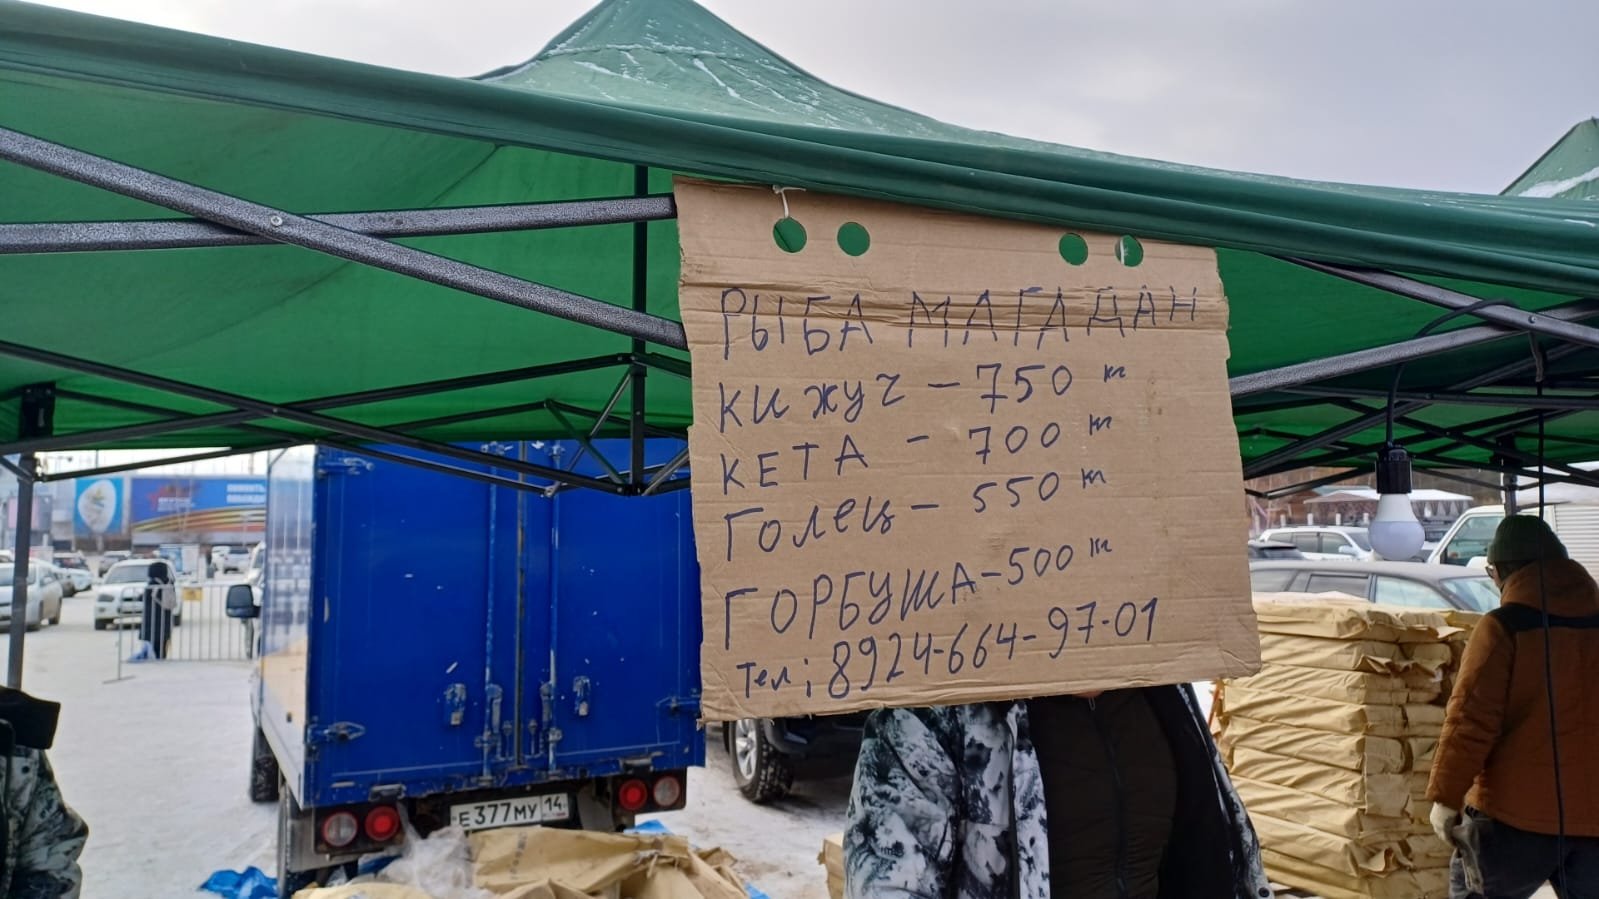 РЫБА МАГАДАН
КИЖУЧ - 750 кг
КЕТА - 700 кг
Голец - 550 кг
ГОРБУША - 500 кг
Тел; 8924-664-97-01
Е377МУ 14